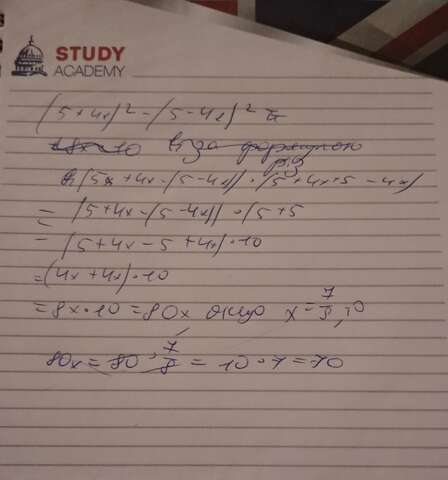 STUDY
ACADEMY
(5+4x)²-(5-4x)²=
18x-10 за формулою
(5x+4x-(5-4x))·(5+4x+5-4x)
=(5+4x-(5-4x))·(5+5
=(5+4x-5+4x)·10
=(4x+4x)·10
=8x·10=80x якщо x=7/8, то
80x=80·7/8=10·7=70